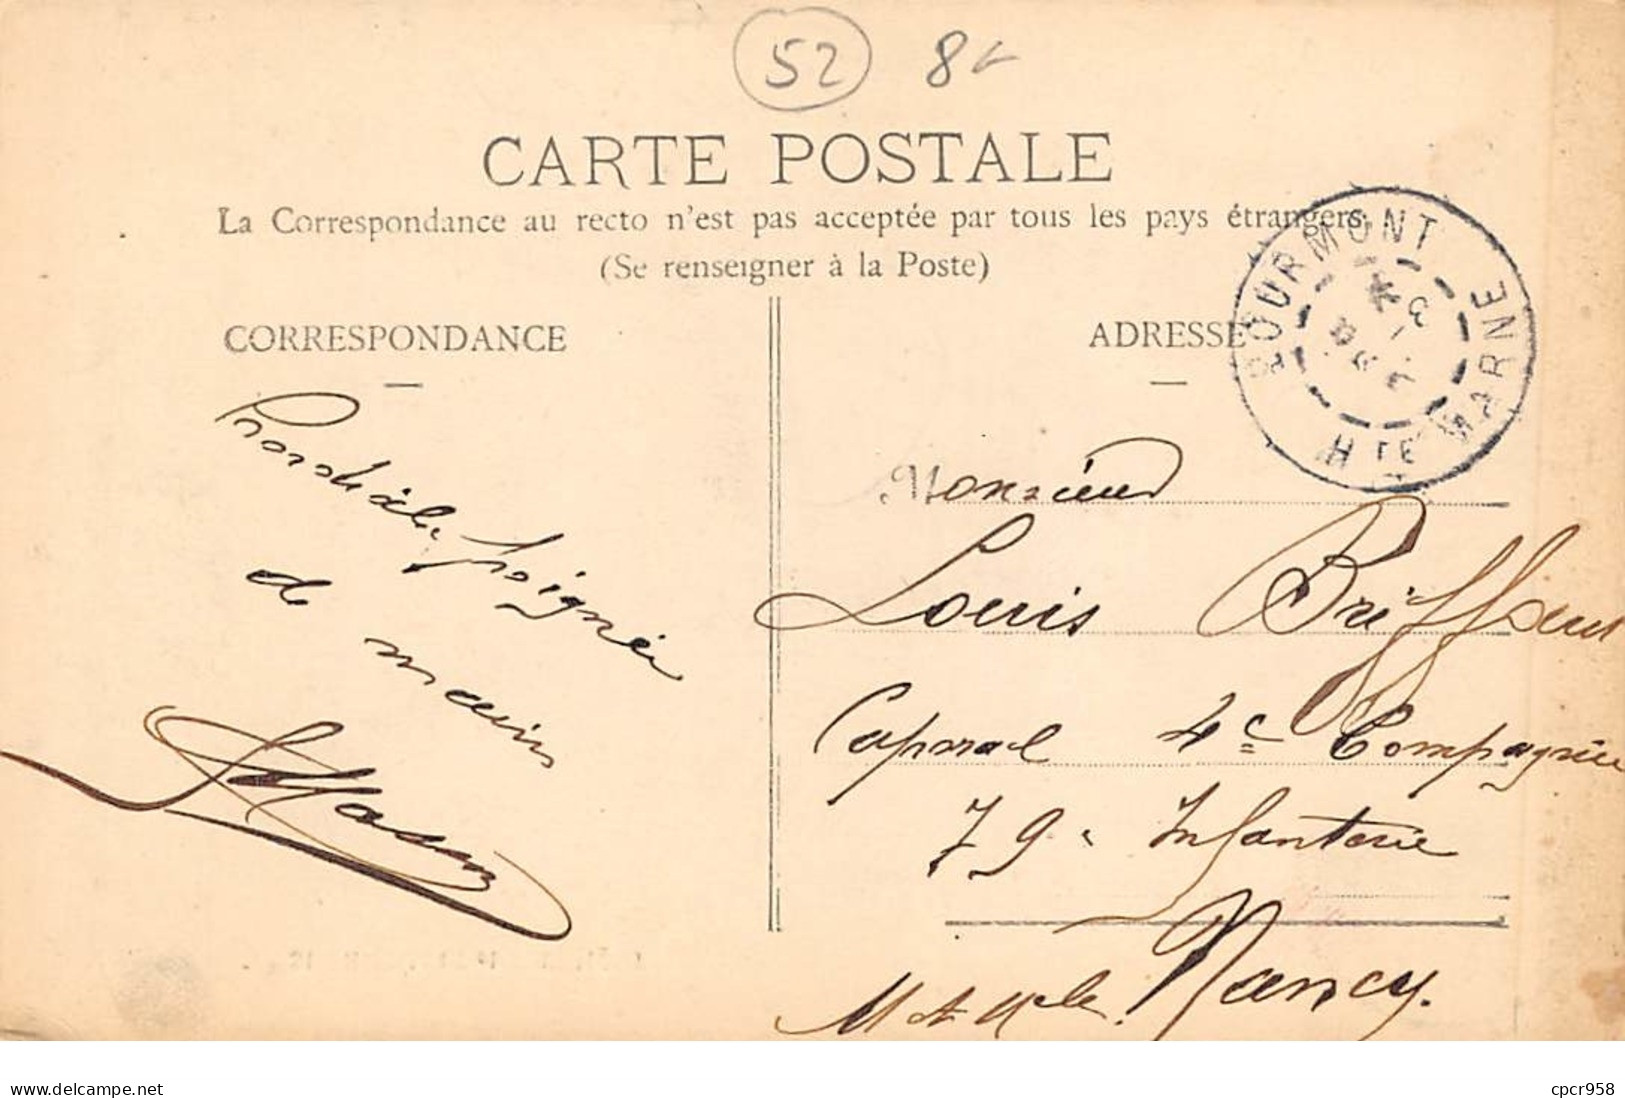 52 8
CARTE POSTALE
La Correspondance au recto n'est pas acceptée par tous les pays étrangers
(Se renseigner à la Poste)
BOURMONT
Hte MARNE
CORRESPONDANCE
ADRESSE
Cordiale poignée
de main
Monsieur
Louis Briffaut
Caporal 4e Compagnie
79e Infanterie
Nancy.
M et Mlle.
www.delcampe.net
cpcr958